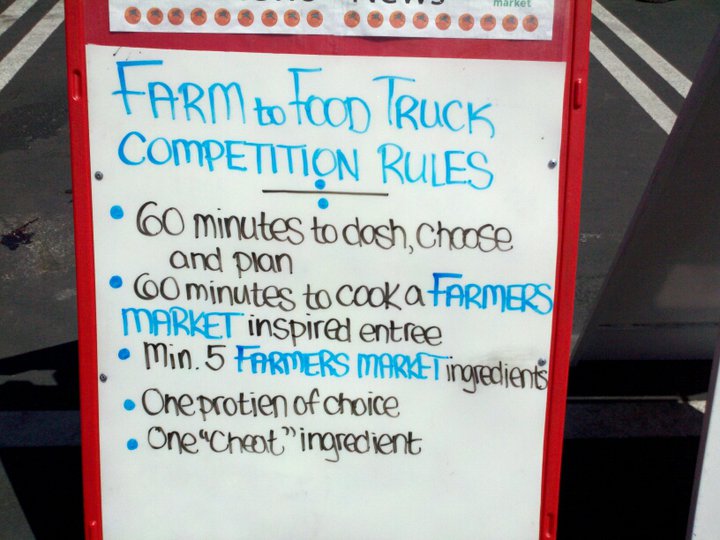 market
FARM to FOOD TRUCK
COMPETITION RULES
• 60 minutes to dash, choose
and plan
• 60 minutes to cook a FARMERS
MARKET inspired entree
• Min. 5 FARMERS MARKET ingredients
• One protien of choice
• One "Cheat" ingredient